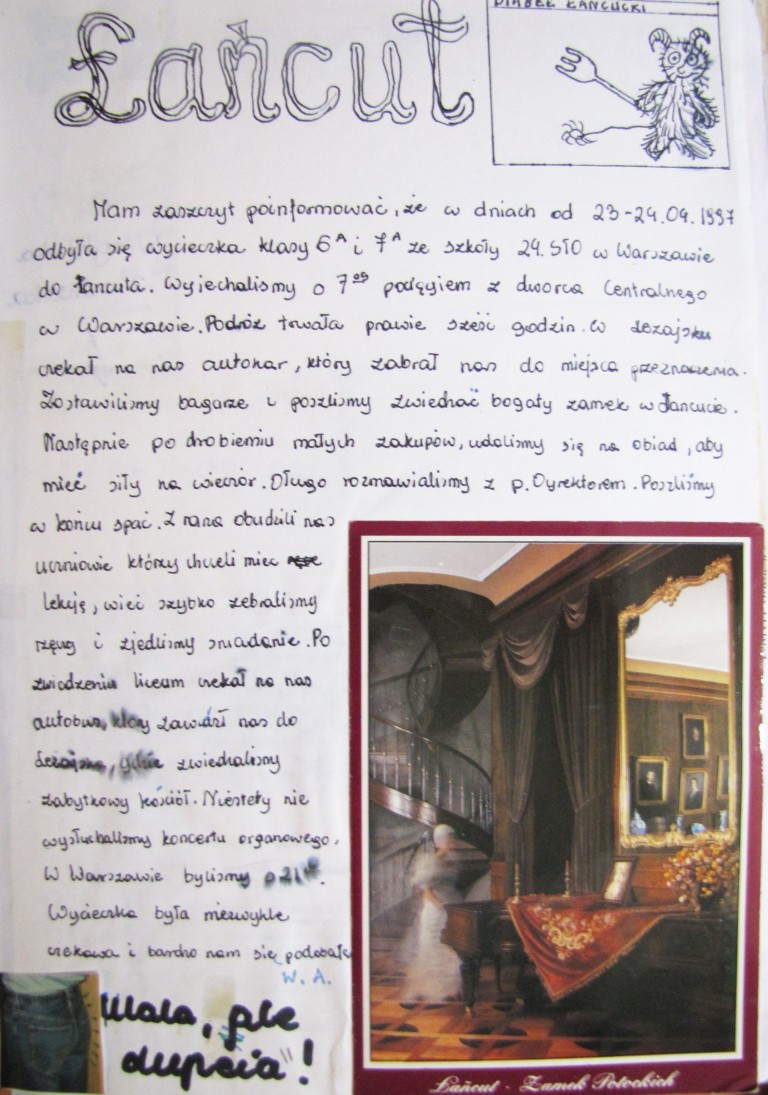 Łańcut
DIABEŁ ŁAŃCUCKI
Mam zaszczyt poinformować, że w dniach od 23-24.04.1997
odbyła się wycieczka klasy 6A i 7A ze szkoły 24. STO w Warszawie
do Łańcuta. Wyjechaliśmy o 7 pociągiem z dworca Centralnego
w Warszawie. Podróż trwała prawie sześć godzin. W Leżajsku
czekał na nas autokar, który zabrał nas do miejsca przeznaczenia.
Zostawiliśmy bagarze i poszliśmy zwiedzać bogaty zamek w Łańcucie.
Następnie po drobieniu małych zakupów, udaliśmy się na obiad, aby
mieć siły na wieczór. Długo rozmawialiśmy z p. Dyrektorem. Poszliśmy
w końcu spać. Z rana obudzili nas
uczniowie którzy chcieli miec
lekcję, wieć szybko zebraliśmy
rzęczy i zjedliśmy sniadanie. Po
zwiedzeniu liceum czekał na nas
autobus, który zawiózł nas do
Leżajska, gdzie zwiedzaliśmy
zabytkowy kościół. Niestety nie
wysłuchaliśmy koncertu organowego.
W Warszawie byliśmy o 21.
Wycieczka była niezwykle
ciekawa i bardzo nam się podobała
W. A.
Mała, ale
"dupcia"!
Łańcut - Zamek Potockich